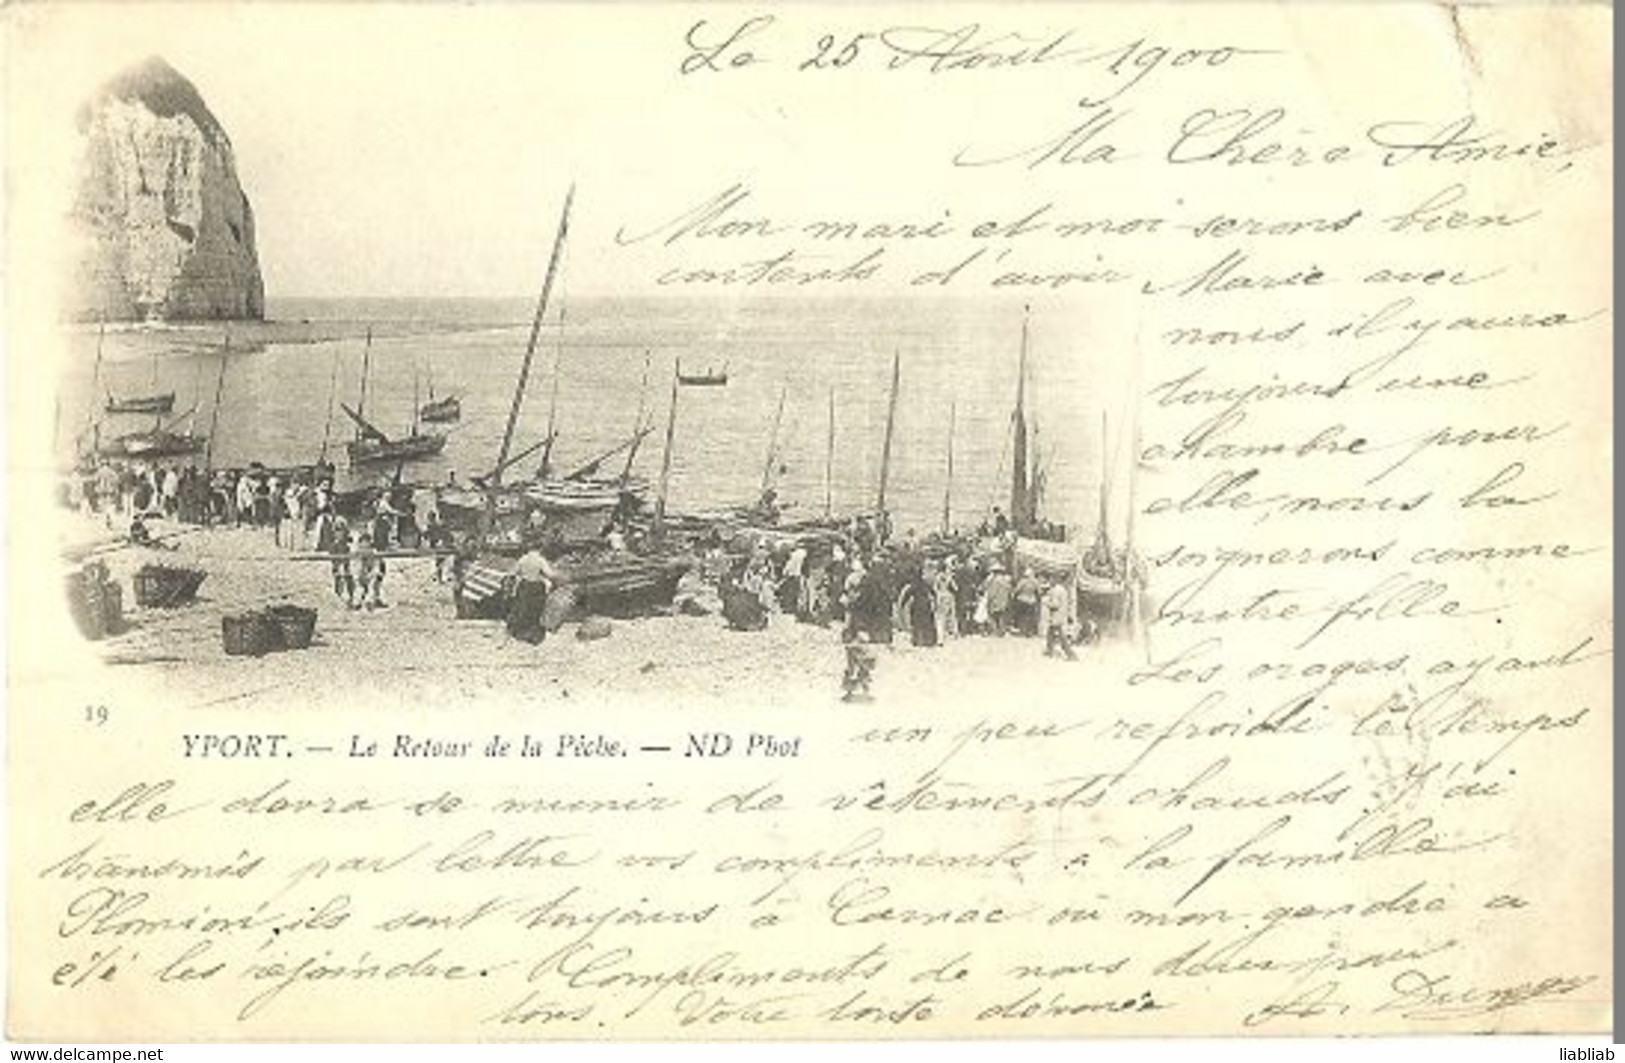 Le 25 Août 1900
Ma Chère Amie,
Mon mari et moi serons bien
contents d'avoir Marie avec
nous, il y aura
toujours une
chambre pour
elle, nous la
soignerons comme
notre fille.
Les orages ayant
un peu refroidi le temps
elle devra se munir de vêtements chauds. J'ai
transmis par lettre vos compliments à la famille
ils sont toujours à Carnac où mon gendre a
été les rejoindre. Compliments de nous deux pour
tous. Votre toute dévouée
19
YPORT. — Le Retour de la Pêche. — ND Phot
www.delcampe.net
liabliab